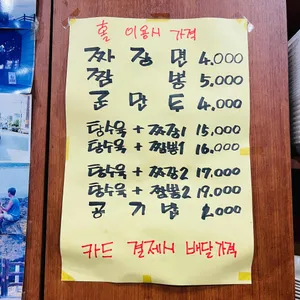 홀 이용시 가격
짜장면 4.000
짬뽕 5.000
군만두 4.000
탕수육 + 짜장1 15.000
탕수육 + 짬뽕1 16.000
탕수육 + 짜장2 17.000
탕수육 + 짬뽕2 19.000
공기밥 1.000
카드 결제시 배달가격